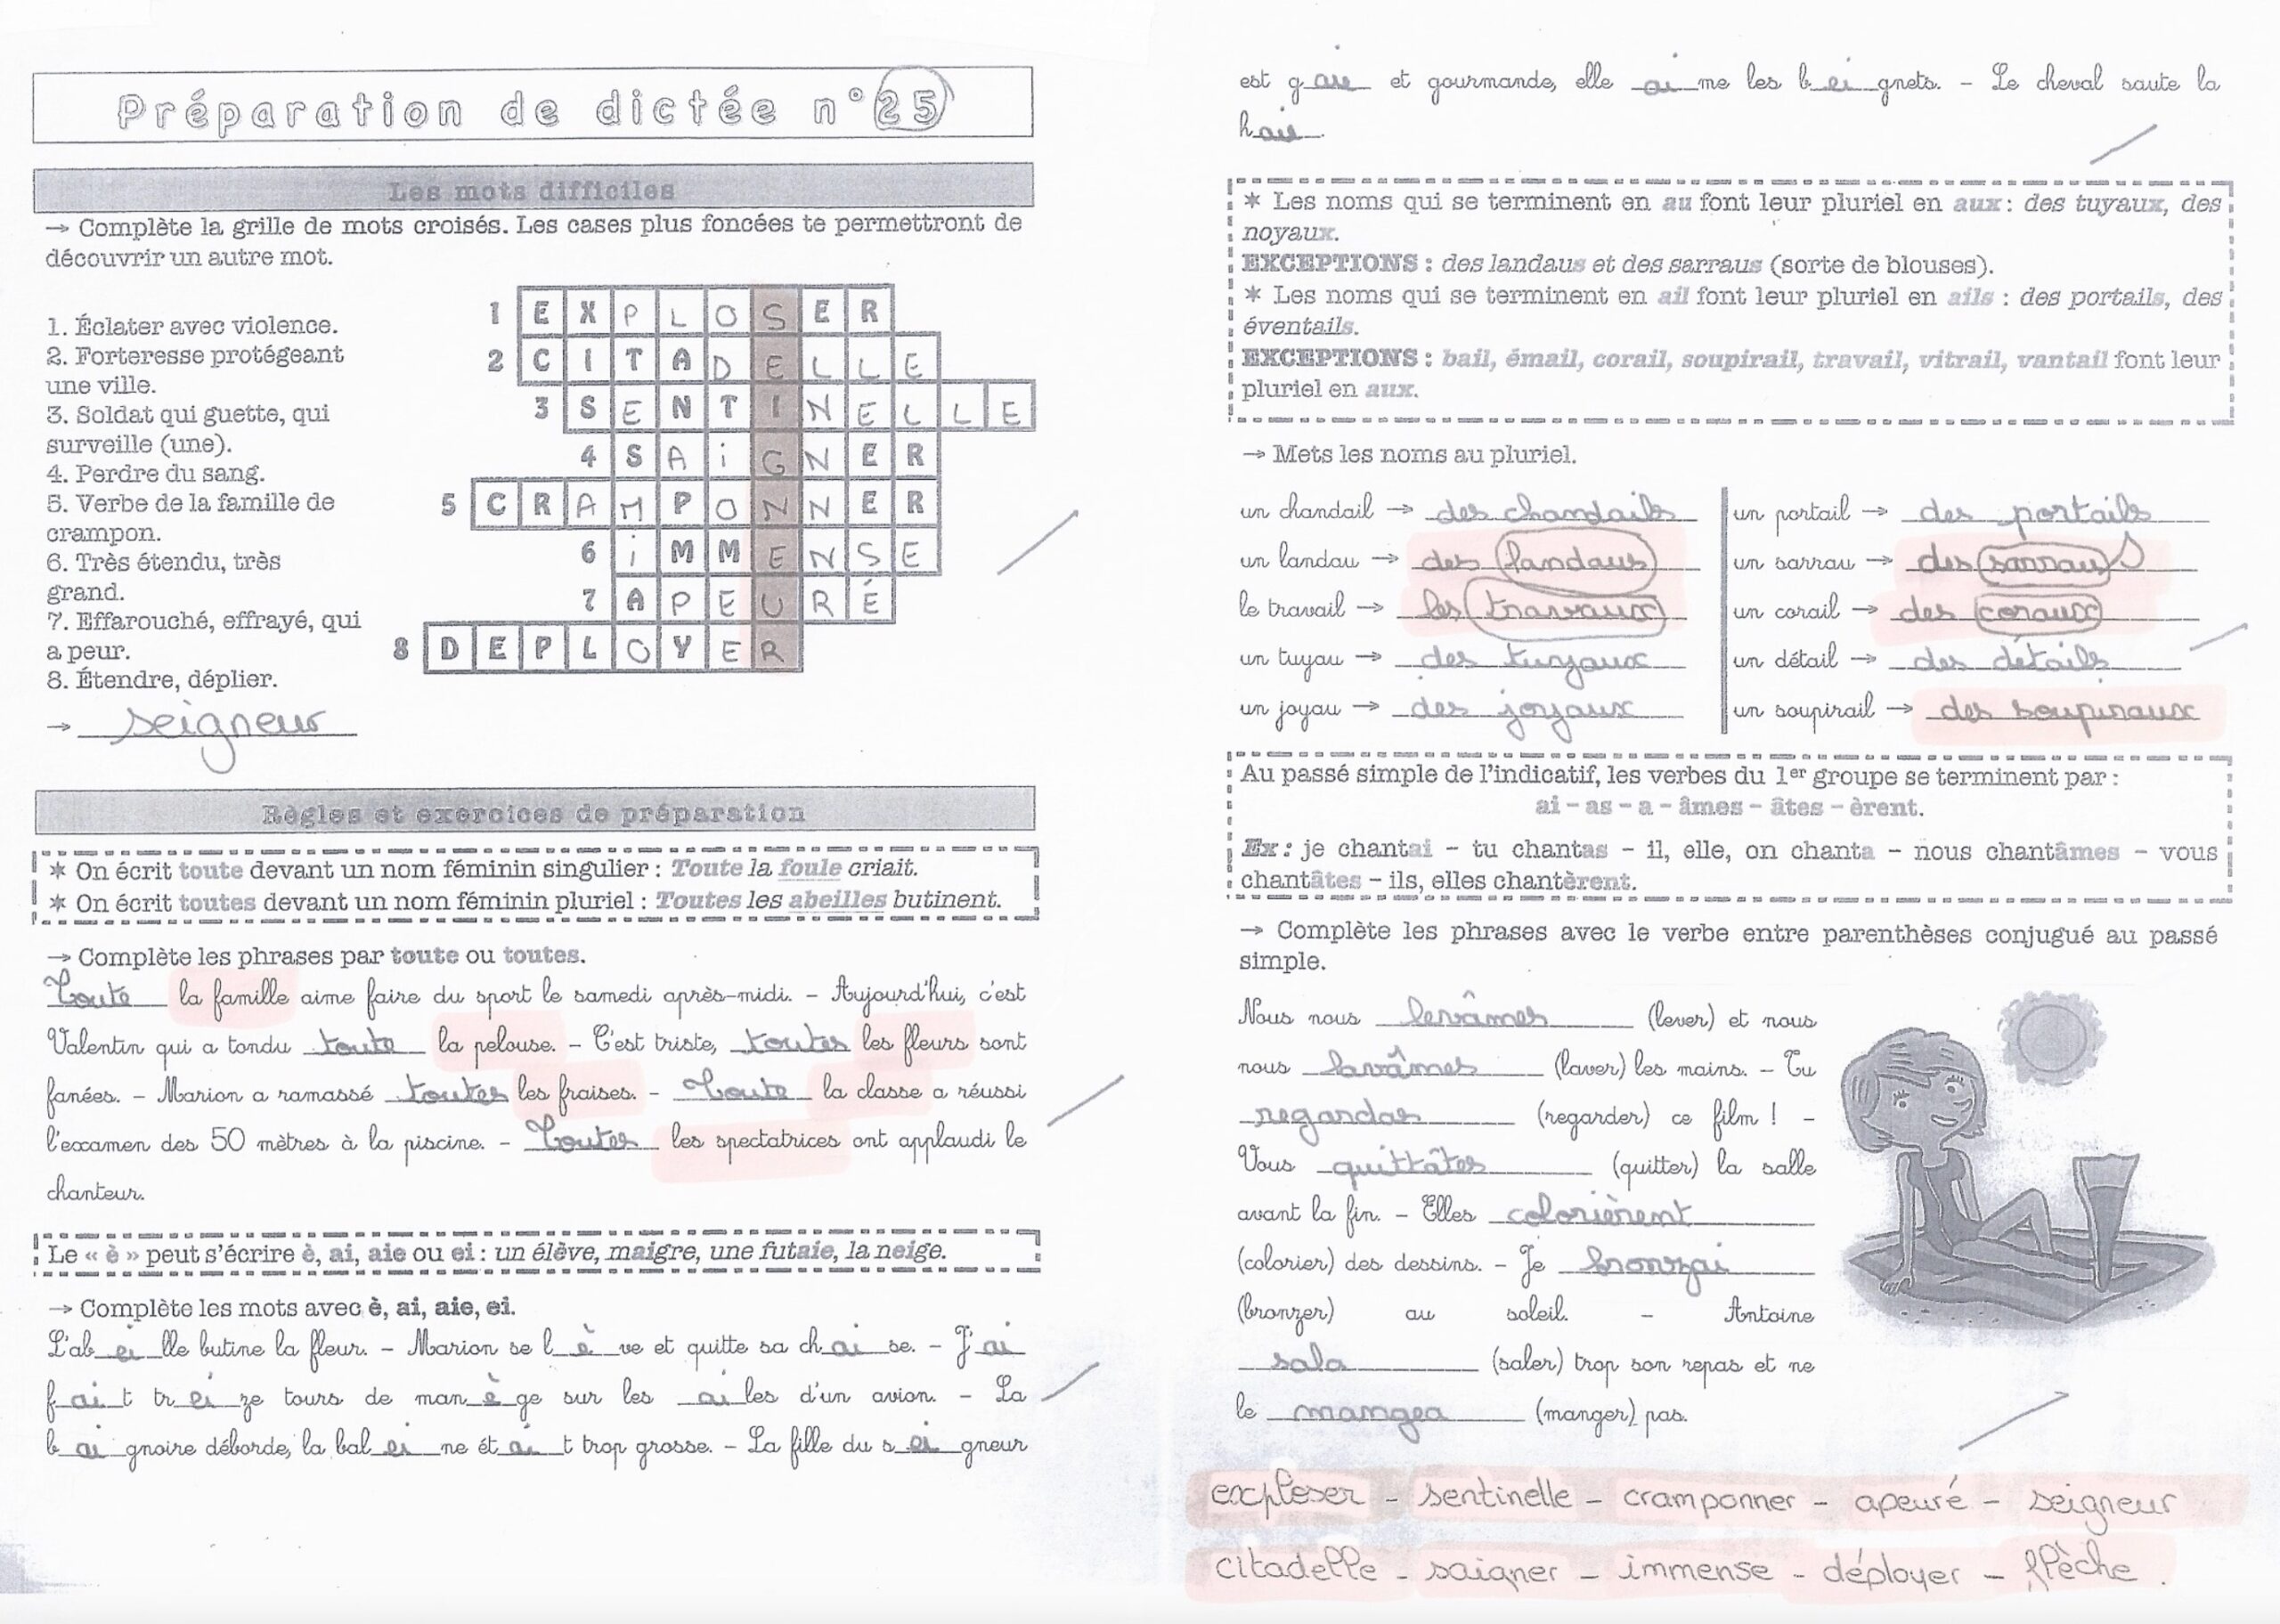 Préparation de dictée n°25
Les mots difficiles
→ Complète la grille de mots croisés. Les cases plus foncées te permettront de
découvrir un autre mot.
1. Éclater avec violence.
2. Forteresse protégeant
une ville.
3. Soldat qui guette, qui
surveille (une).
4. Perdre du sang.
5. Verbe de la famille de
crampon.
6. Très étendu, très
grand.
7. Effarouché, effrayé, qui
a peur.
8. Étendre, déplier.
1 EXPLOSER
2 CITADELLE
3 SENTINELLE
4 SAiGNER
5 CRAMPONNER
6 iMMENSE
7 APEURÉ
8 DEPLOYER
→ seigneur
Règles et exercices de préparation
* On écrit toute devant un nom féminin singulier : Toute la foule criait.
* On écrit toutes devant un nom féminin pluriel : Toutes les abeilles butinent.
→ Complète les phrases par toute ou toutes.
Toute la famille aime faire du sport le samedi après-midi. – Aujourd'hui, c'est
Valentin qui a tondu toute la pelouse. – C'est triste, toutes les fleurs sont
fanées. – Marion a ramassé toutes les fraises. – Toute la classe a réussi
l'examen des 50 mètres à la piscine. – Toutes les spectatrices ont applaudi le
chanteur.
Le « è » peut s'écrire è, ai, aie ou ei : un élève, maigre, une futaie, la neige.
→ Complète les mots avec è, ai, aie, ei.
L'abeille butine la fleur. – Marion se lève et quitte sa chaise. – J'ai
fait treize tours de manège sur les ailes d'un avion. – La
baignoire déborde, la baleine était trop grosse. – La fille du seigneur
est gaie et gourmande, elle aime les beignets. – Le cheval saute la
haie.
* Les noms qui se terminent en au font leur pluriel en aux : des tuyaux, des
noyaux.
EXCEPTIONS : des landaus et des sarraus (sorte de blouses).
* Les noms qui se terminent en ail font leur pluriel en ails : des portails, des
éventails.
EXCEPTIONS : bail, émail, corail, soupirail, travail, vitrail, vantail font leur
pluriel en aux.
→ Mets les noms au pluriel.
un chandail → des chandails
un landau → des landaus
le travail → les travaux
un tuyau → des tuyaux
un joyau → des joyaux
un portail → des portails
un sarrau → des sarraus
un corail → des coraux
un détail → des détails
un soupirail → des soupiraux
Au passé simple de l'indicatif, les verbes du 1er groupe se terminent par :
ai – as – a – âmes – âtes – èrent.
Ex : je chantai – tu chantas – il, elle, on chanta – nous chantâmes – vous
chantâtes – ils, elles chantèrent.
→ Complète les phrases avec le verbe entre parenthèses conjugué au passé
simple.
Nous nous levâmes (lever) et nous
nous lavâmes (laver) les mains. – Tu
regardas (regarder) ce film ! –
Vous quittâtes (quitter) la salle
avant la fin. – Elles colorièrent
(colorier) des dessins. – Je bronzai
(bronzer) au soleil. – Antoine
sala (saler) trop son repas et ne
le mangea (manger) pas.
exploser – sentinelle – cramponner – apeuré – seigneur
citadelle – saigner – immense – déployer – flèche.